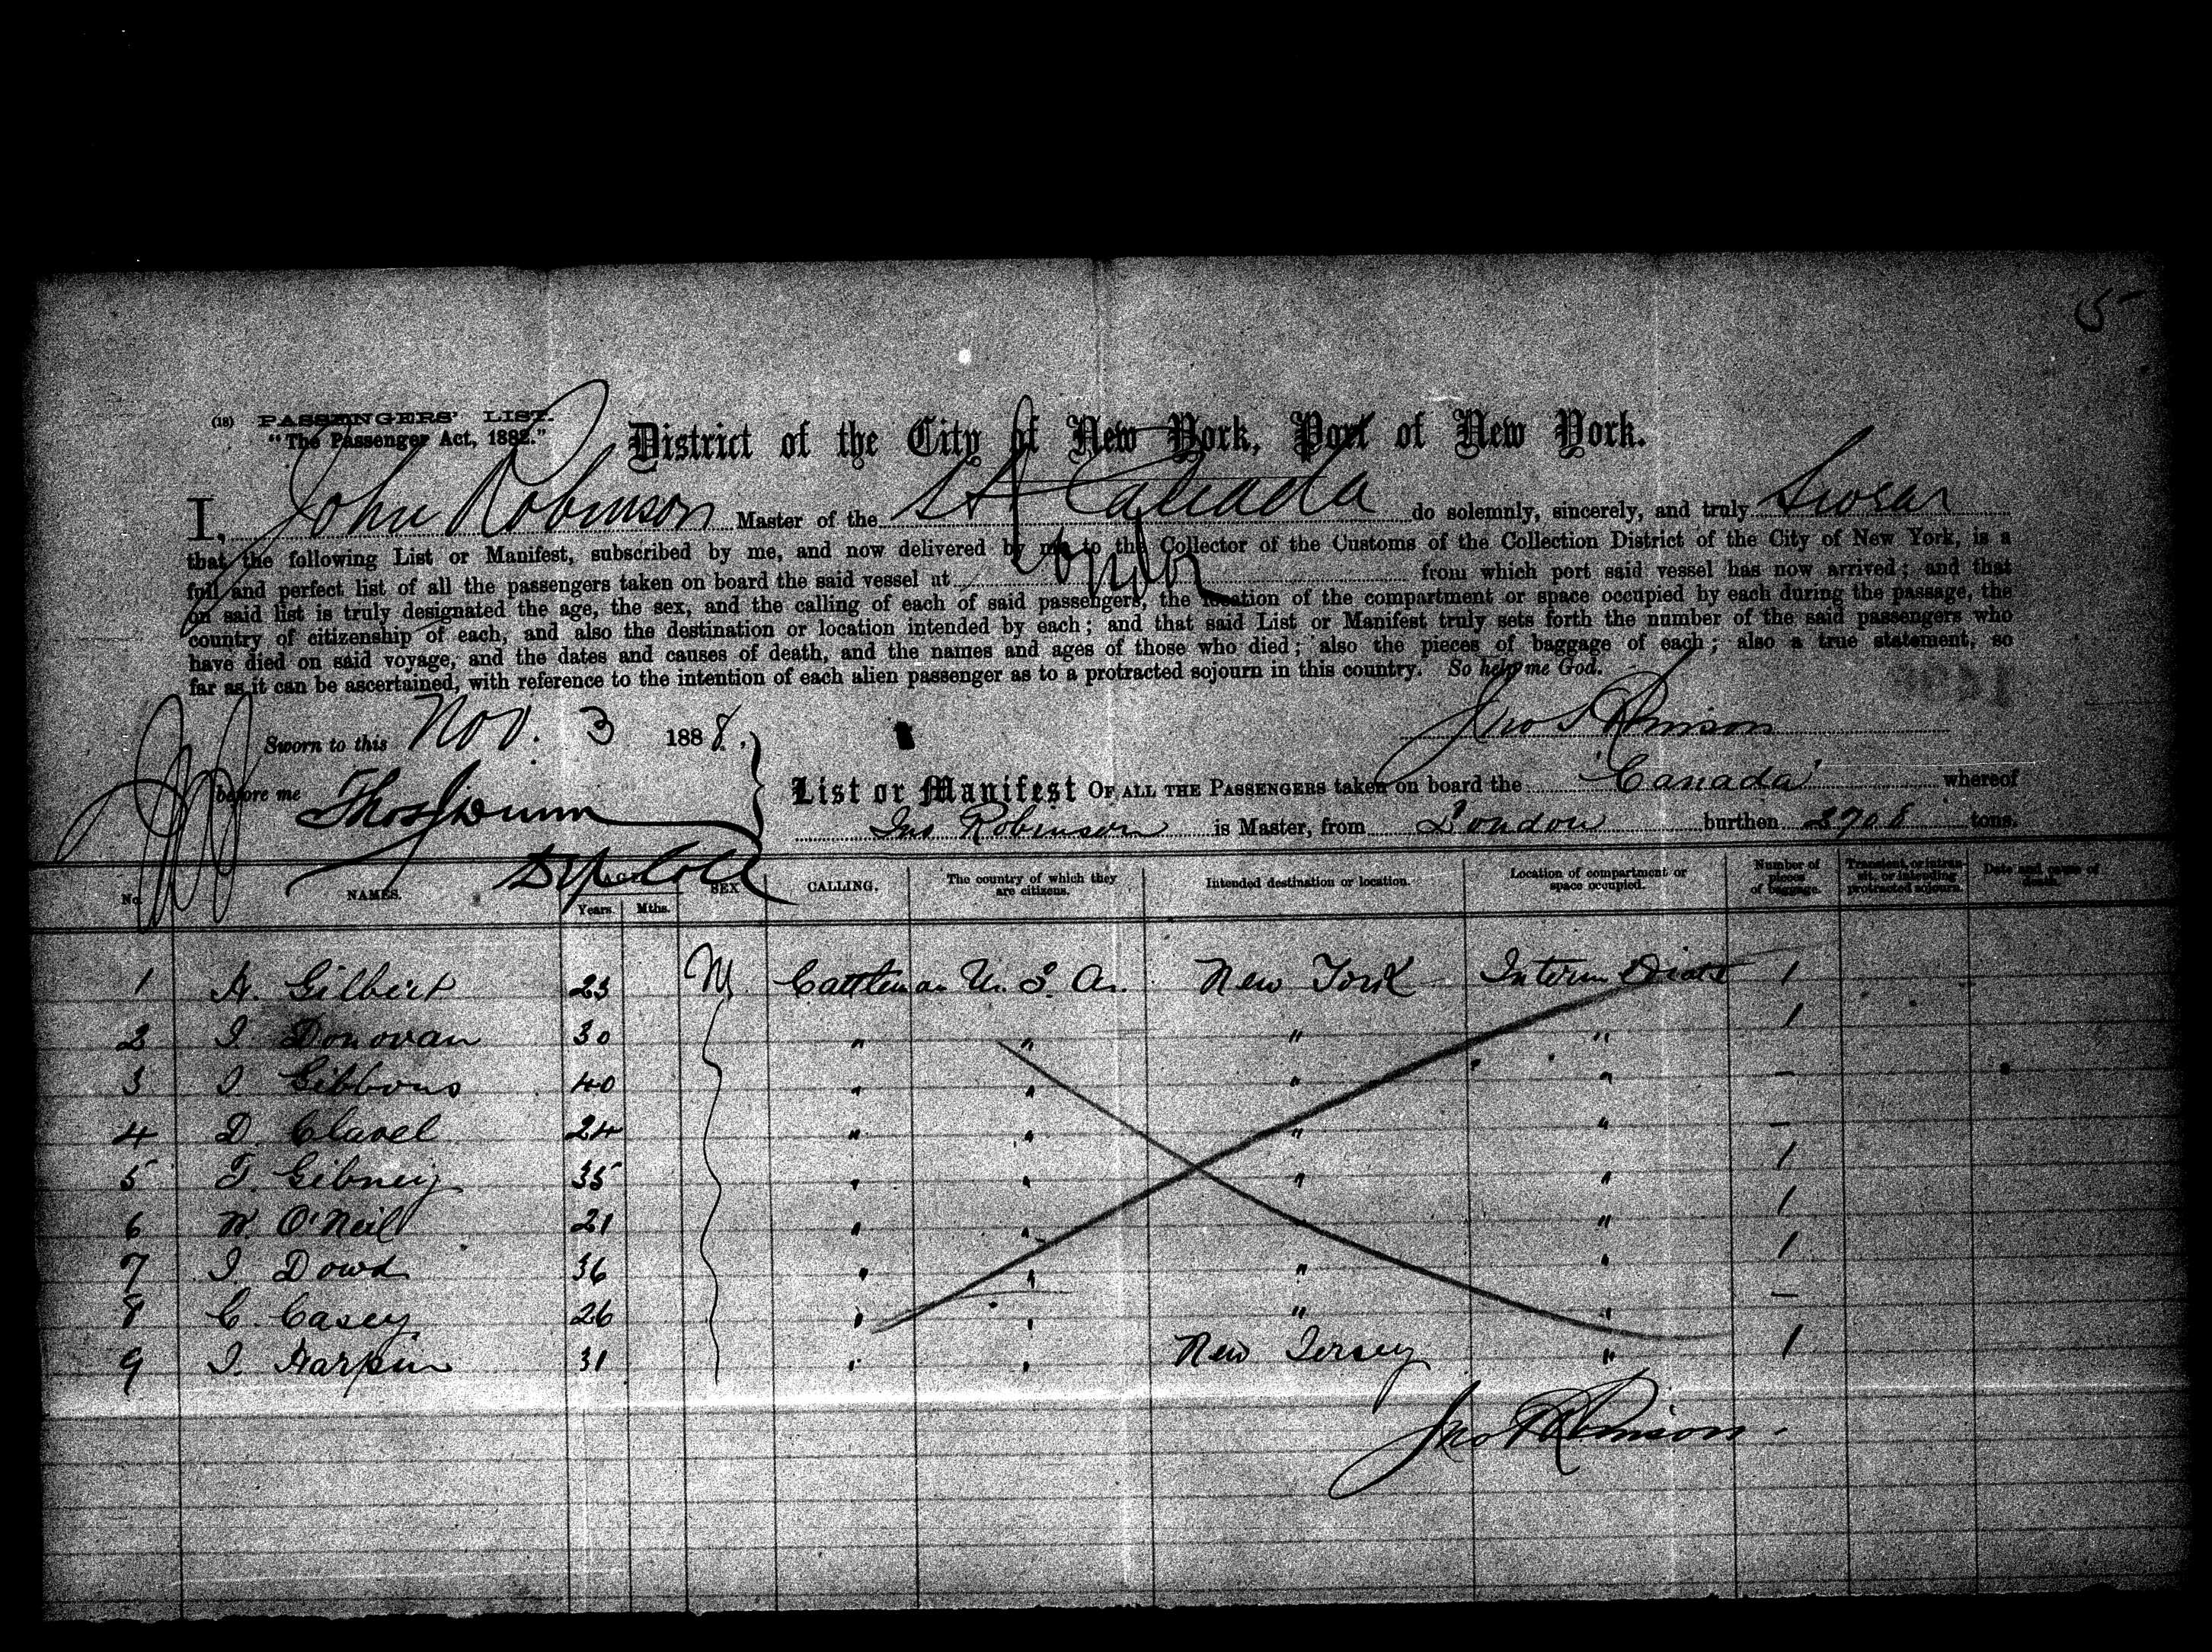 5
(18) PASSENGERS' LIST.
"The Passenger Act, 1882."
District of the City of New York, Port of New York.
I, John Robinson Master of the SS Canada do solemnly, sincerely, and truly Swear
that the following List or Manifest, subscribed by me, and now delivered by me to the Collector of the Customs of the Collection District of the City of New York, is a
full and perfect list of all the passengers taken on board the said vessel at London from which port said vessel has now arrived; and that
on said list is truly designated the age, the sex, and the calling of each of said passengers, the location of the compartment or space occupied by each during the passage, the
country of citizenship of each, and also the destination or location intended by each; and that said List or Manifest truly sets forth the number of the said passengers who
have died on said voyage, and the dates and causes of death, and the names and ages of those who died; also the pieces of baggage of each; also a true statement, so
far as it can be ascertained, with reference to the intention of each alien passenger as to a protracted sojourn in this country. So help me God.
Jno Robinson
Sworn to this Nov. 3 1888.
before me Thos Dunn
Dep Coll
List or Manifest OF ALL THE PASSENGERS taken on board the "Canada" whereof
Jno Robinson is Master, from London burthen 2708 tons.
No. NAMES. AGE. Years. Mths. SEX CALLING. The country of which they are citizens. Intended destination or location. Location of compartment or space occupied. Number of pieces of baggage. Transient, or in transit, or intending protracted sojourn. Date and cause of death.
1 A. Gilbert 23 M Cattleman U. S. A. New York Intermediate 1
2 J Donovan 30 " " " " 1
3 J. Gibbons 40 " " " " -
4 D. Clavel 24 " " " " -
5 T. Gibney 35 " " " " 1
6 W. O'Neil 21 " " " " 1
7 J. Dowd 36 " " " " 1
8 C. Casey 26 " " " " -
9 J. Harpin 31 " " New Jersey " 1
Jno Robinson.